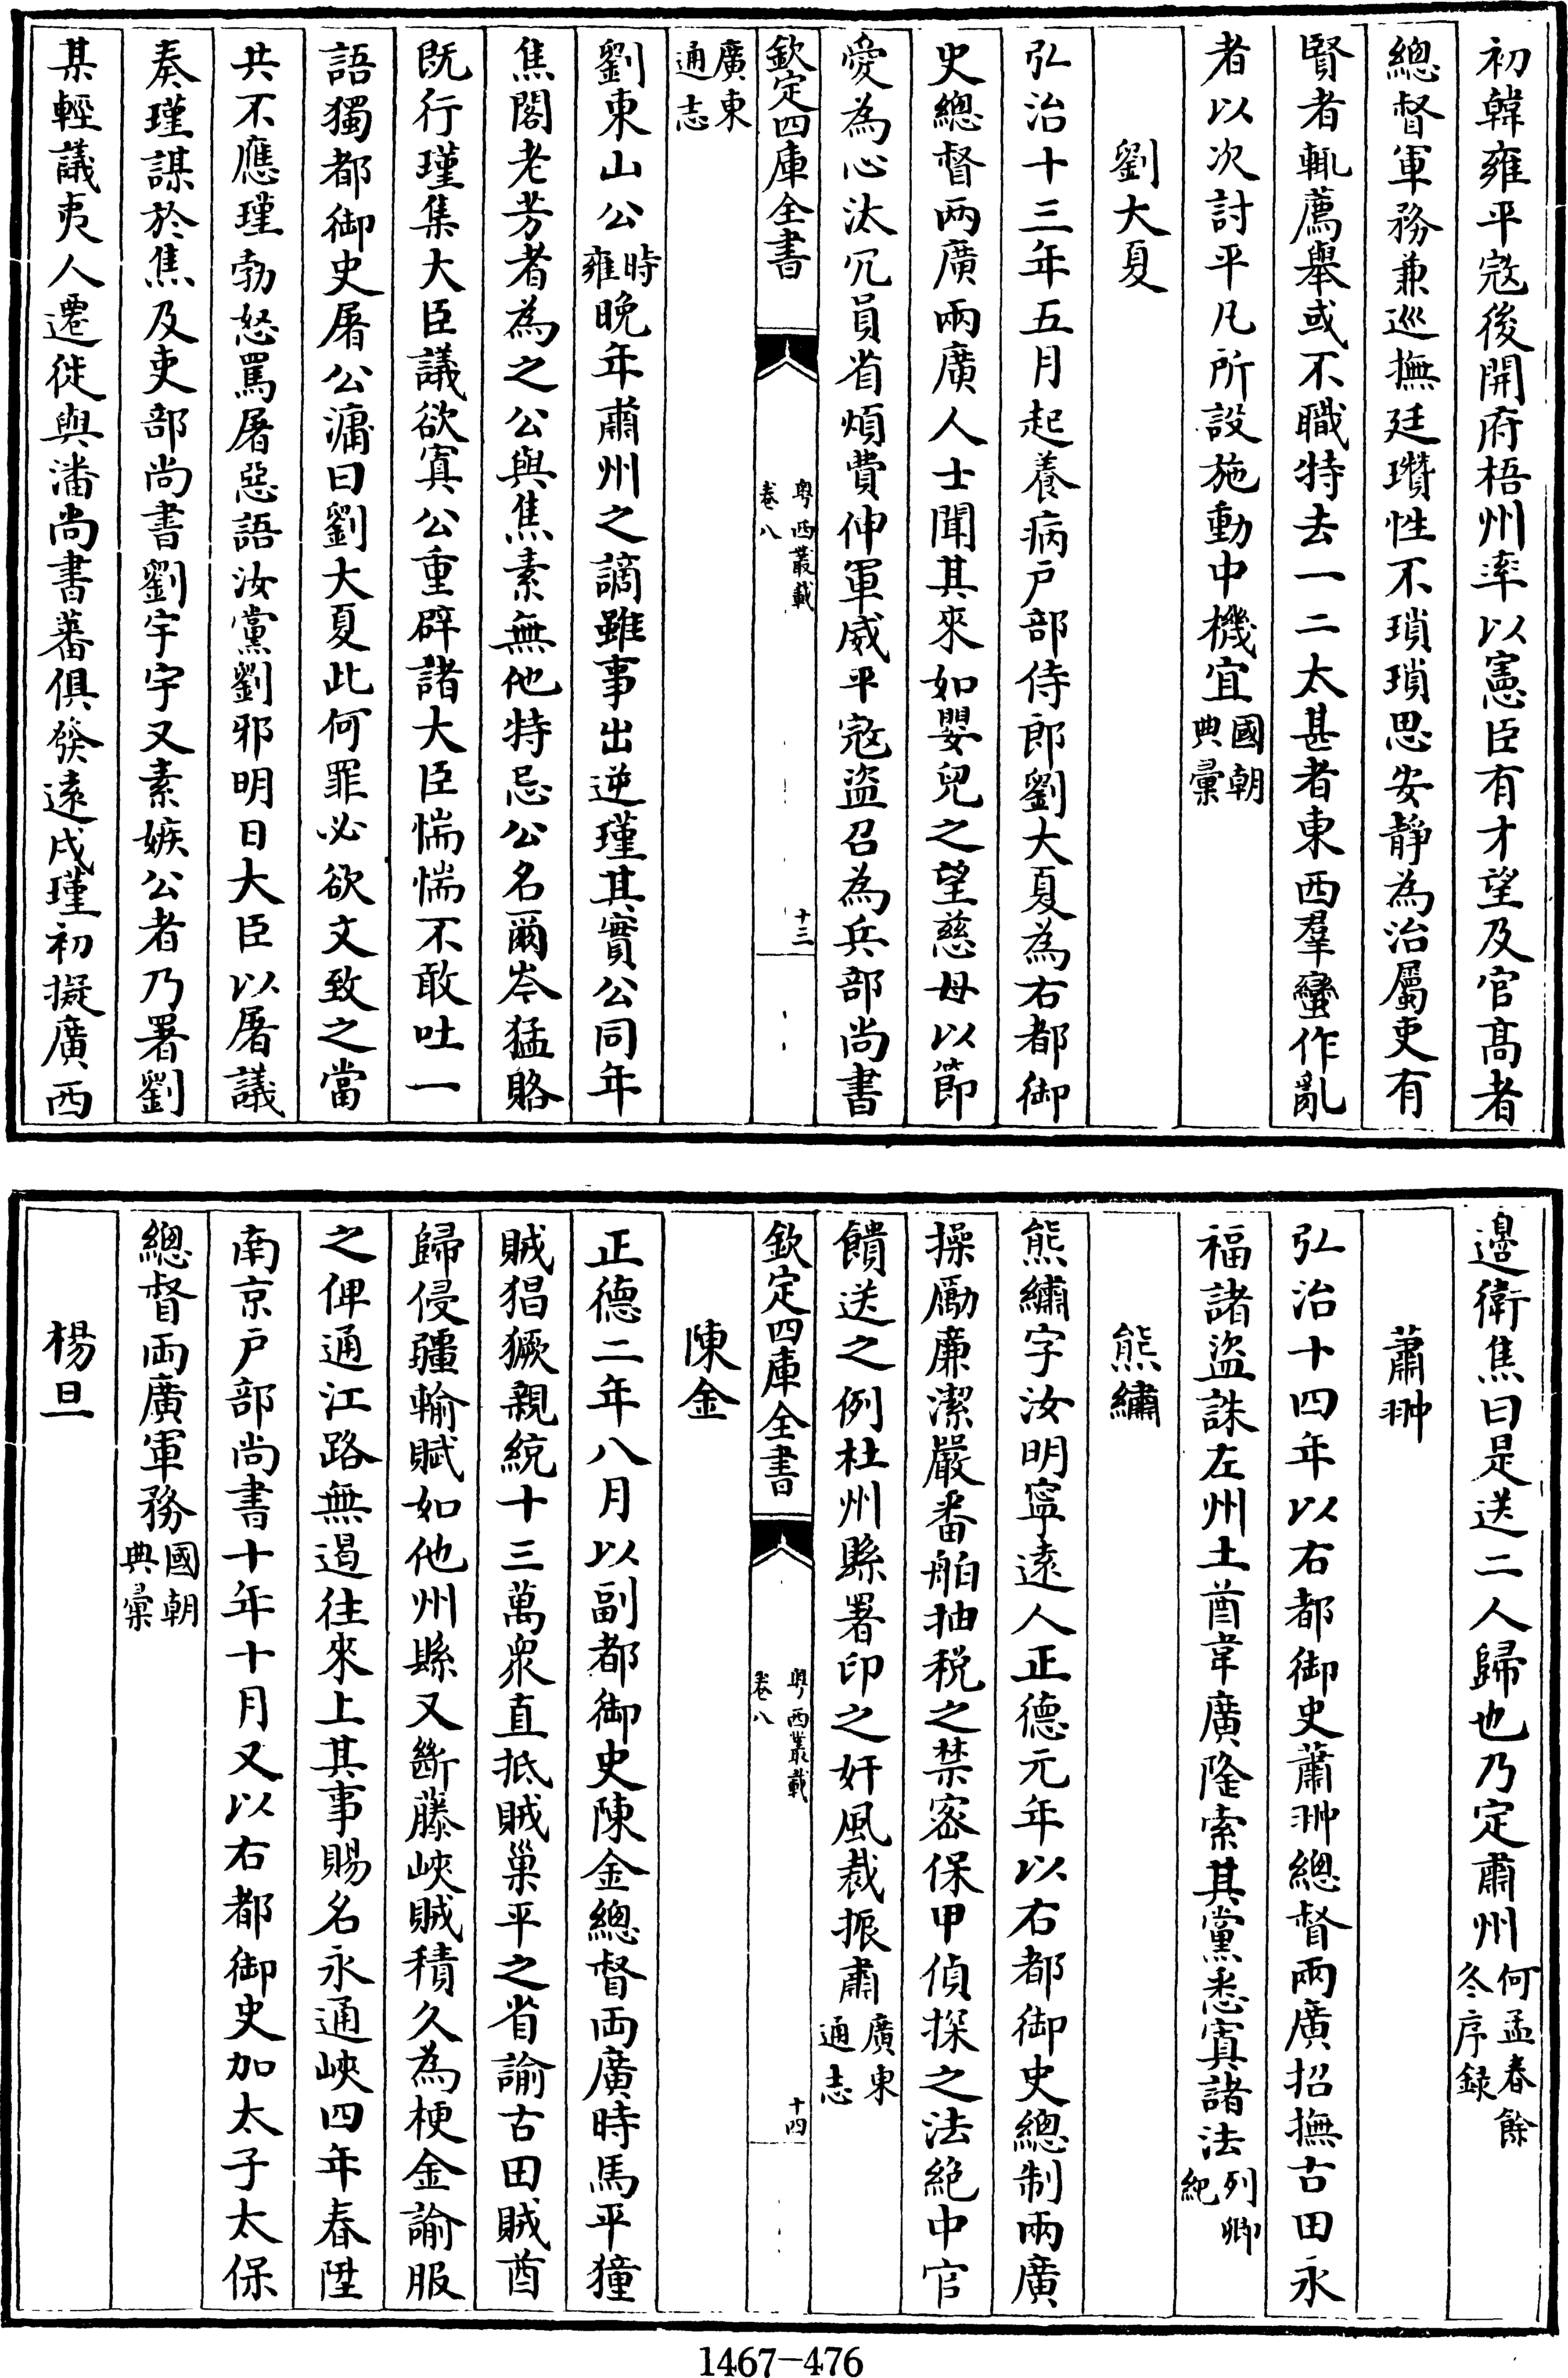 初韓雍平寇後開府梧州率以憲臣有才望及官髙者
總督軍務兼巡撫廷瓚性不瑣瑣思安靜為治屬吏有
賢者輒薦舉或不職特去一二太甚者東西羣蠻作亂
者以次討平凡所設施動中機宜國朝典彚
劉大夏
弘治十三年五月起養病户部侍郎劉大夏為右都御
史總督兩廣兩廣人士聞其來如嬰兒之望慈母以節
愛為心汰冗員省煩費伸軍威平寇盜召為兵部尚書
欽定四庫全書
粤西叢載
卷八
十三
廣東通志
劉東山公時雍晚年肅州之謫雖事出逆瑾其實公同年
焦閣老芳者為之公與焦素無他特忌公名爾岑猛賂
既行瑾集大臣議欲寘公重辟諸大臣惴惴不敢吐一
語獨都御史屠公滽曰劉大夏此何罪必欲文致之當
共不應瑾勃怒罵屠惡語汝黨劉邪明日大臣以屠議
奏瑾謀於焦及吏部尚書劉宇宇又素嫉公者乃署劉
某輕議夷人遷徙與潘尚書蕃俱發遠戍瑾初擬廣西
邊衛焦曰是送二人歸也乃定肅州何孟春餘冬序録
蕭翀
弘治十四年以右都御史蕭翀總督兩廣招撫古田永
福諸盜誅左州土酋韋廣隆索其黨悉寘諸法列卿紀
熊繡
熊繡字汝明寧遠人正德元年以右都御史總制兩廣
操勵廉潔嚴番舶抽税之禁密保甲偵探之法絶中官
饋送之例杜州縣署印之奸風裁振肅廣東通志
欽定四庫全書
粤西叢載
卷八
十四
陳金
正德二年八月以副都御史陳金總督兩廣時馬平獞
賊猖獗親統十三萬衆直抵賊巢平之省諭古田賊酋
歸侵疆輸賦如他州縣又斷藤峽賊積久為梗金諭服
之俾通江路無遏往來上其事賜名永通峽四年春陞
南京户部尚書十年十月又以右都御史加太子太保
總督兩廣軍務國朝典彚
楊旦
1467-476